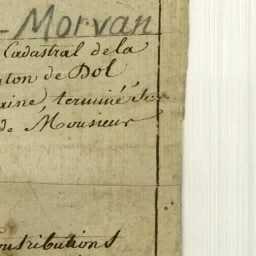 - Morvan
Cadastral de la
ton de Dol
aine, terminé
de Monsieur
ontributions